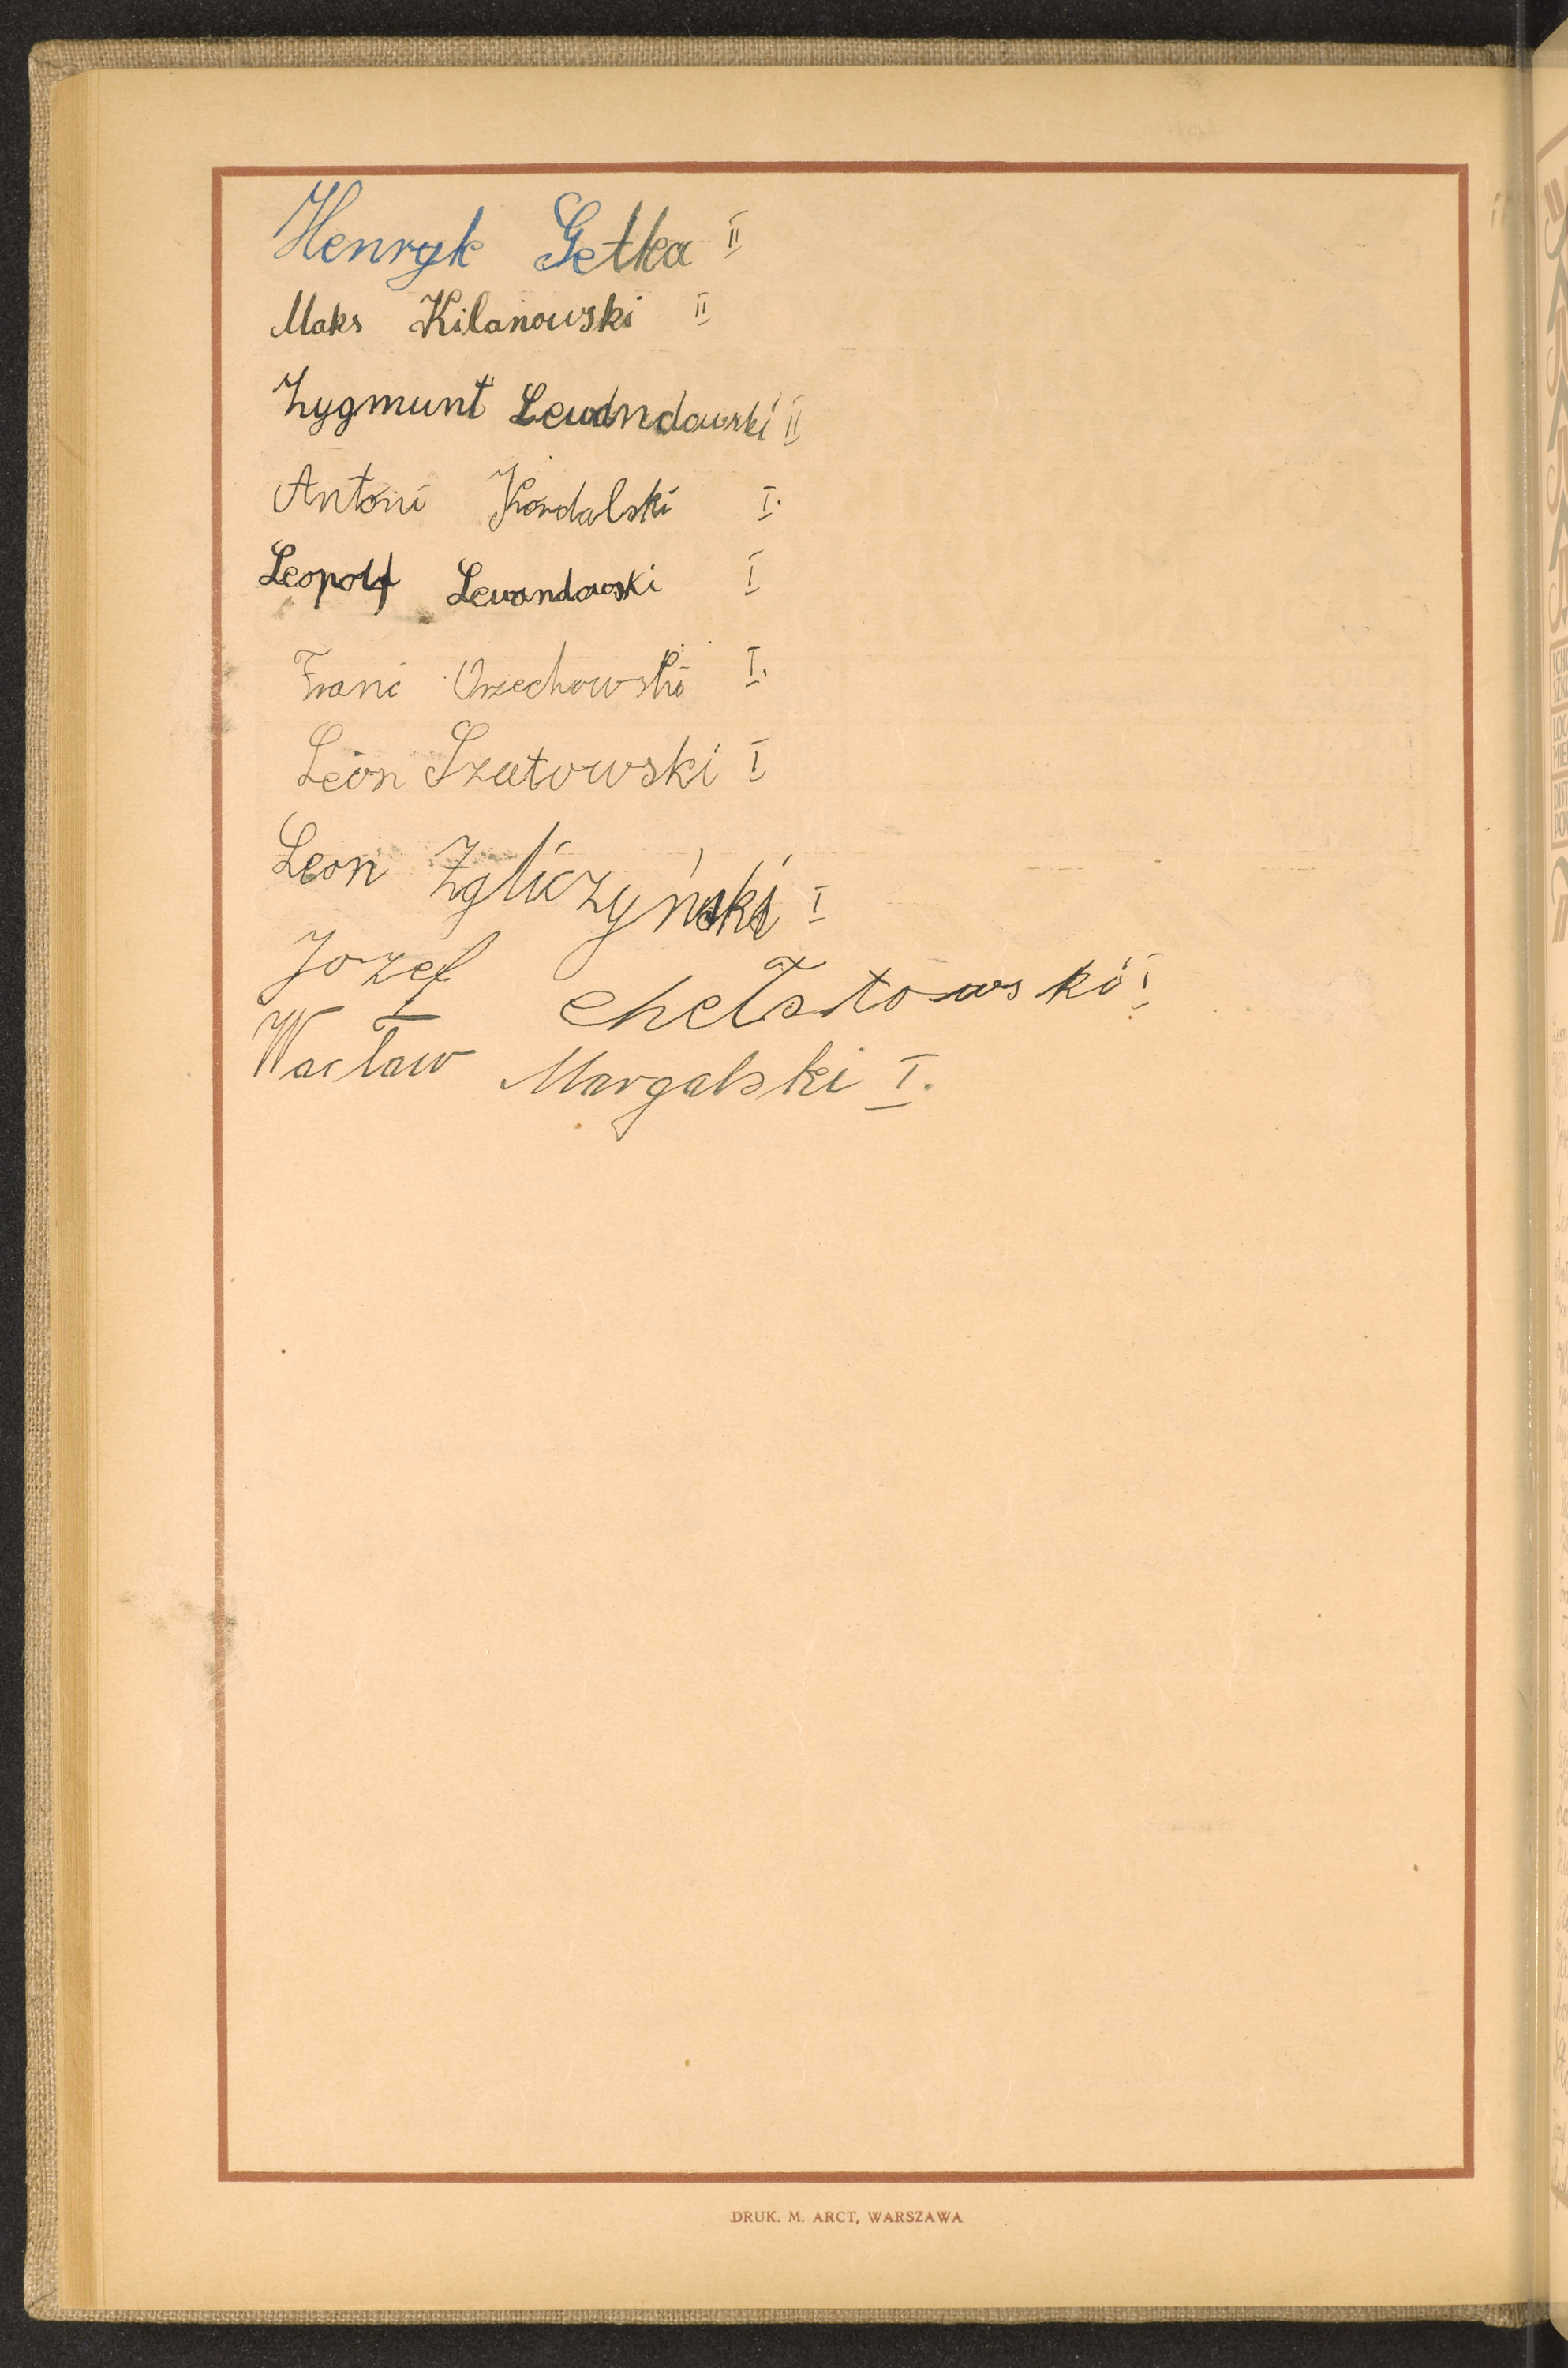 Henryk Getka II
Maks Kilanowski II
Zygmunt Lewandowski II
Antoni Kordalski I.
Leopold Lewandowski I
Franc Orzechowski I.
Leon Szatowski I
Leon Zgliczyński I
Jozef Chełstowski I
Wacław Margalski I.
DRUK. M. ARCT, WARSZAWA